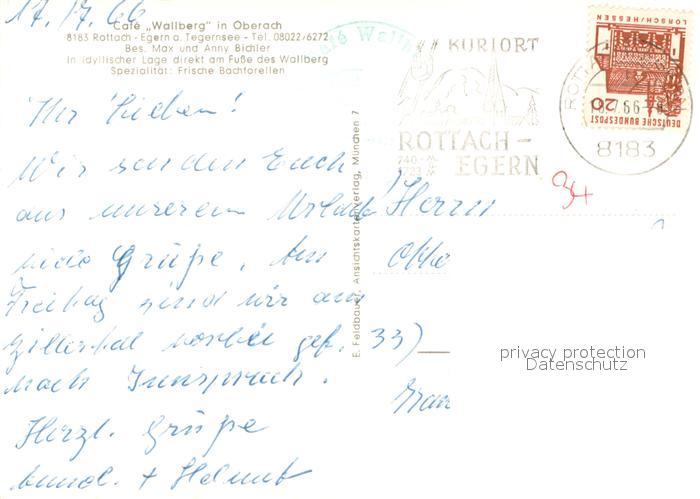 17.7.66
Café „Wallberg" in Oberach
8183 Rottach - Egern a. Tegernsee - Tel. 08022/6272
Bes. Max und Anny Bichler
In idyllischer Lage direkt am Fuße des Wallberg
Spezialität: Frische Bachforellen
Ihr Lieben!
Wir senden Euch
aus unserem Urlaub
viele Grüße. Am
Freitag sind wir am
Zillertal vorbei gef.
nach Innspruck.
Herzl. Grüße
+ Helmut
E. Feldbauer, Ansichtskartenverlag, München 7
Café Wall
KURORT
ROTTACH-
EGERN
740-
ROTTA
66-
8183
20
DEUTSCHE BUNDESPOST
LORSCH/HESSEN
Herrn
33)
privacy protection
Datenschutz